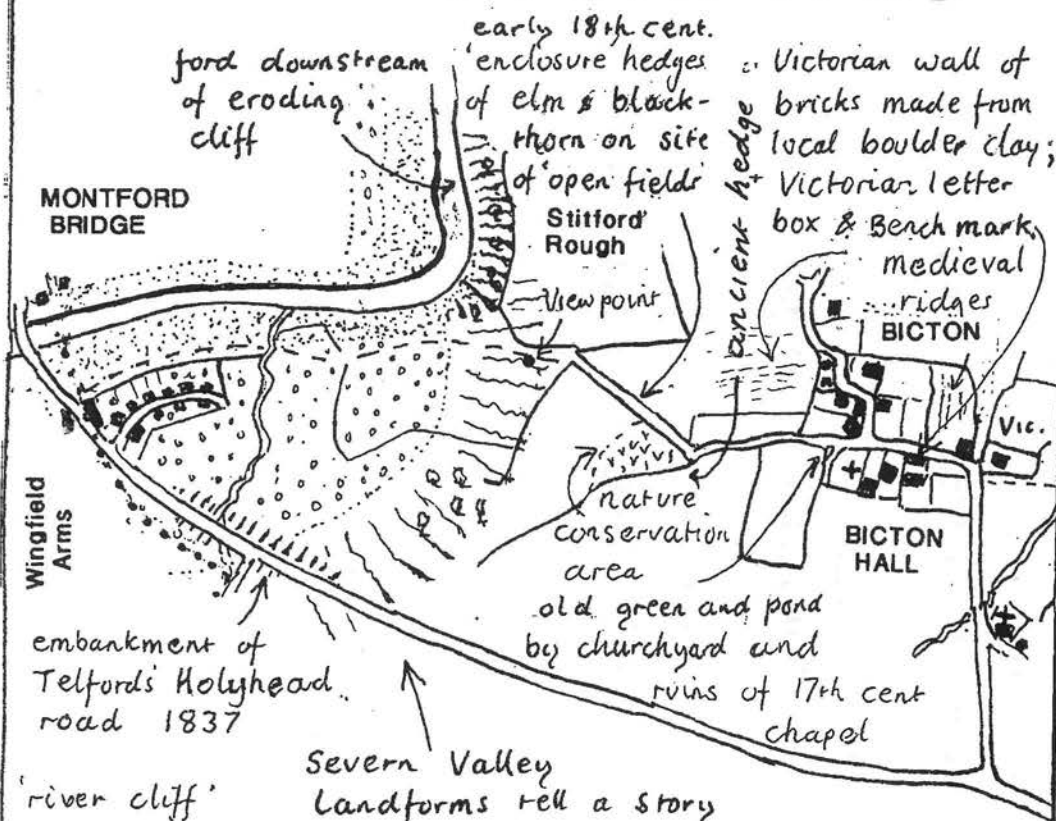 ford downstream
of eroding
cliff
early 18th cent.
'enclosure hedges
of elm & black-
thorn on site
of 'open fields'
ancient hedge
Victorian wall of
bricks made from
local boulder clay;
Victorian letter
box & Bench mark,
medieval
ridges
MONTFORD
BRIDGE
Stitford
Rough
Viewpoint
BICTON
Vic.
Wingfield
Arms
nature
conservation
area
BICTON
HALL
old green and pond
by churchyard and
ruins of 17th cent
chapel
embankment of
Telfords Holyhead
road 1837
'river cliff'
Severn Valley
Landforms tell a story